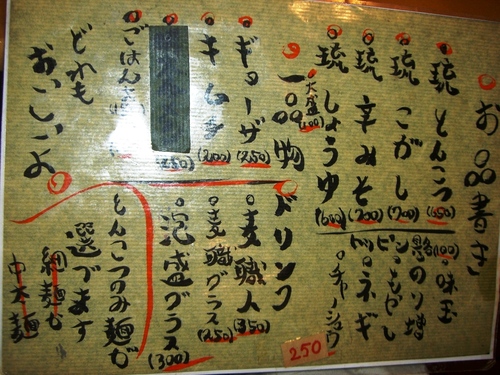 お品書き
琉 とんこつ (650)
琉 こがし (700)
琉 辛みそ (700)
琉 しょうゆ (600)
大盛(100)
(100) 味玉
のり増
ピンともどし
トッ ネギ
チャーシュウ
一品物
ギョーザ (250)
キムチ (200)
(250)
ごはん
どれも
おいしいよ
ドリンク
麦職人 (350)
麦職グラス (250)
泡盛グラス (300)
250
とんこつのみ麺が
選べます
細麺か
中太麺